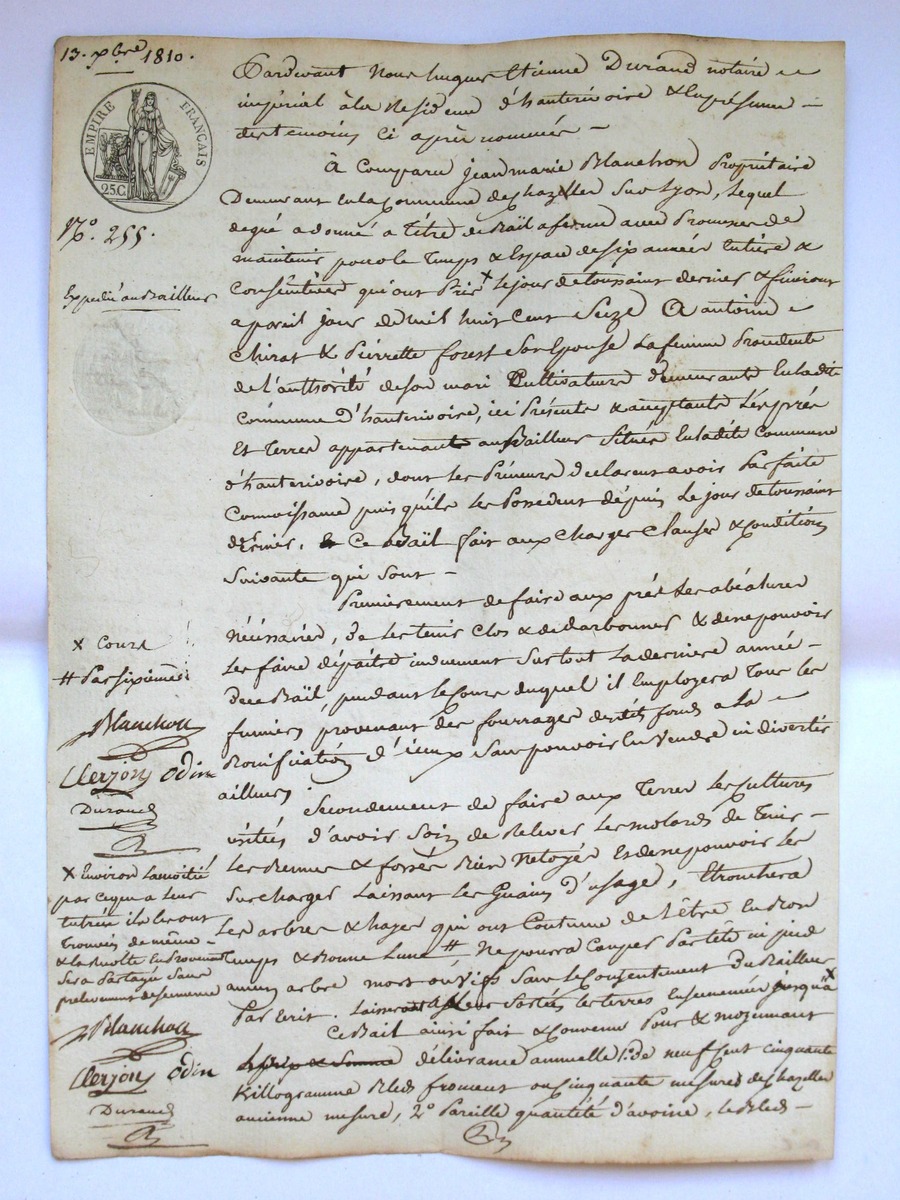 13. xbre 1810.
EMPIRE FRANÇAIS
25C
No. 255.
Expedié au Bailleur
Pardevant Nous hugues Etienne Durand notaire
imperial à la Residence d'hauterivoire & en présence
des temoins ci après nommés
À Comparu jean marie Blanchon Propriétaire
Demeurant en la Commune de chazelles sur Lyon, Lequel
degré a donné a têtre de Bail a ferme avec Promesse de
maintenir pour le temps & Espace de six années Entière &
Consecutives qui ont Pris x le jour de toussaint dernier & finiront
a pareil jour de mil huit cent Seize A antoine
Chirat & Pierrette forest Son Epouse La femme Procedente
de l'authorité de son mari Cultivateurs demeurants En ladite
Commune d'hauterivoire, ici Présents & acceptants Les prés
Et Terres appartenants au Bailleur Situés En ladite Commune
d'hauterivoire, dont les Preneurs declarent avoir Parfaite
Connoissance puis qu'ils les Possedent dépuis Le jour de toussaint
dernier, Ce Bail fait aux Charges Clauses & conditions
Suivante qui sont
Premierement de faire aux prés Les abéalures
Nécéssaires, de les tenir Clos & & de ne pouvoir
Les faire dépaître induement Surtout La derniere année
De ce Bail, pendant le Cours duquel il Employera Tous les
fumiers provenant des fourrages desdits fonds a La
Bonification d'iceux Sans pouvoir En Vendre ni divertir
ailleurs
Secondement de faire aux Terres Les Cultures
usitées d'avoir Soin de Relever Les molards de Tenir
Les Rennes & fossés Bien Netoyés Et de ne pouvoir les
Surcharger Laissant Les Guains d'usage, Etronchera
Les arbres & hayes qui ont Coutume de L'être En Bon
temps & Bonne Lune # Ne pourra Couper Par tête ni pied
aucun arbre mort ou vifs Sans Le Consentement Du Bailleur
Par Ecrit. Laisseront Leur Sortie Les terres Ensemencées jusqu'à x
Ce Bail ainsi fait & Convenu Pour & moyennant
délivrance annuelle 1o. de neuf cent cinquante
Killogramme Bled froment ou cinquante mesures de chazelles
ancienne mesure, 2o Pareille quantité d'avoine, Le Bled
x Cours
# Par sixième
Blanchon
Clerjon Odin
Durand
x Environ La moitié
par Ce qu'a Leur
Entrée ils les ont
Trouvées de même
& La Recolte En Provenant
Sera Partagée Sans
prelevement de semence
Blanchon
Clerjon Odin
Durand